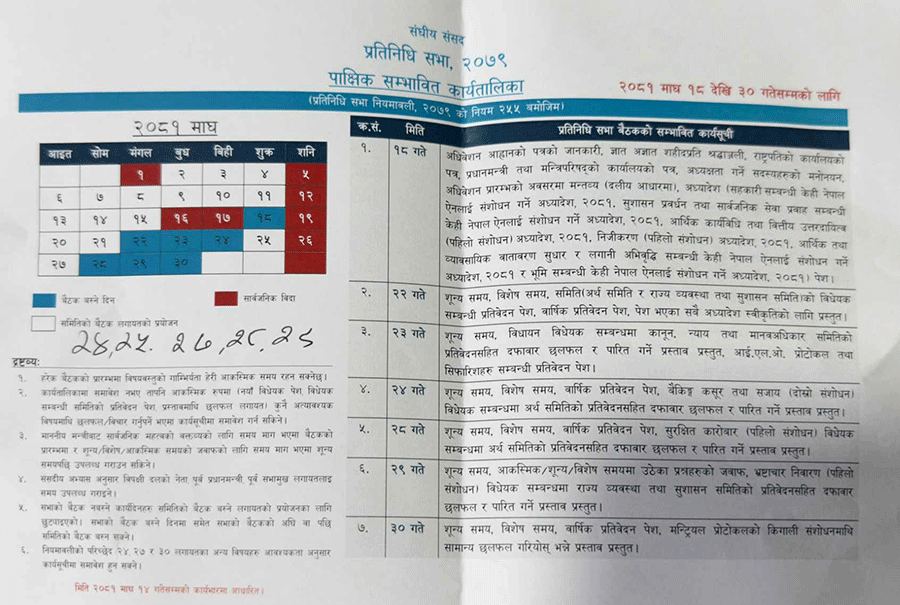 संघीय संसद
प्रतिनिधि सभा, २०७९
पाक्षिक सम्भावित कार्यतालिका
२०८१ माघ १८ देखि ३० गतेसम्मको लागि
(प्रतिनिधि सभा नियमावली, २०७९ को नियम २५५ बमोजिम)
२०८१ माघ
आइत सोम मंगल बुध बिही शुक्र शनि
१ २ ३ ४ ५
६ ७ ८ ९ १० ११ १२
१३ १४ १५ १६ १७ १८ १९
२० २१ २२ २३ २४ २५ २६
२७ २८ २९ ३०
बैठक बस्ने दिन
सार्वजनिक बिदा
समितिको बैठक लगायतको प्रयोजन
द्रष्टव्य:
१. हरेक बैठकको प्रारम्भमा विषयवस्तुको गाम्भिर्यता हेरी आकस्मिक समय रहन सक्नेछ।
२. कार्यतालिकामा समावेश नभए तापनि आकस्मिक रुपमा (नयाँ विधेयक पेश, विधेयक
सम्बन्धी समितिको प्रतिवेदन पेश, प्रस्तावमाथि छलफल लगायत) कुनै अत्यावश्यक
विषयमाथि छलफल/विचार गर्नुपर्ने भएमा कार्यसूचीमा समावेश गर्न सकिने।
३. माननीय मन्त्रीबाट सार्वजनिक महत्वको वक्तव्यको लागि समय माग भएमा बैठकको
प्रारम्भमा र शून्य/विशेष/आकस्मिक समयको जवाफको लागि समय माग भएमा शून्य
समयपछि उपलब्ध गराउन सकिने।
४. संसदीय अभ्यास अनुसार विपक्षी दलको नेता पूर्व प्रधानमन्त्री पूर्व सभामुख लगायतलाइ
समय उपलब्ध गराइने।
५. सभाको बैठक नबस्ने कार्यदिनहरु समितिको बैठक बस्ने लगायतको प्रयोजनका लागि
छुट्याइएको। सभाको बैठक बस्ने दिनमा समेत सभाको बैठकको अघि वा पछि
समितिको बैठक बस्न सक्ने।
६. नियमावलीको परिच्छेद २४, २७ र ३० लगायतका अन्य विषयहरु आवश्यकता अनुसार
कार्यसूचीमा समावेश हुन सक्ने।
मिति २०८१ माघ १४ गतेसम्मको कार्यभारमा आधारित।
क्र.सं. मिति प्रतिनिधि सभा बैठकको सम्भावित कार्यसूची
१. १८ गते अधिवेशन आह्वानको पत्रको जानकारी, ज्ञात अज्ञात शहीदप्रति श्रद्धाञ्जली, राष्ट्रपतिको कार्यालयको
पत्र, प्रधानमन्त्री तथा मन्त्रिपरिषद्को कार्यालयको पत्र, अध्यक्षता गर्ने सदस्यहरुको मनोनयन,
अधिवेशन प्रारम्भको अवसरमा मन्तव्य (दलीय आधारमा), अध्यादेश (सहकारी सम्बन्धी केही नेपाल
ऐनलाई संशोधन गर्ने अध्यादेश, २०८१, सुशासन प्रवर्धन तथा सार्वजनिक सेवा प्रवाह सम्बन्धी
केही नेपाल ऐनलाई संशोधन गर्ने अध्यादेश, २०८१, आर्थिक कार्यविधि तथा वित्तीय उत्तरदायित्व
(पहिलो संशोधन) अध्यादेश, २०८१, निजीकरण (पहिलो संशोधन) अध्यादेश, २०८१, आर्थिक तथा
व्यावसायिक वातावरण सुधार र लगानी अभिवृद्धि सम्बन्धी केही नेपाल ऐनलाई संशोधन गर्ने
अध्यादेश, २०८१ र भूमि सम्बन्धी केही नेपाल ऐनलाई संशोधन गर्ने अध्यादेश, २०८१) पेश।
२. २२ गते शून्य समय, विशेष समय, समिति(अर्थ समिति र राज्य व्यवस्था तथा सुशासन समिति)को विधेयक
सम्बन्धी प्रतिवेदन पेश, वार्षिक प्रतिवेदन पेश, पेश भएका सबै अध्यादेश स्वीकृतिको लागि प्रस्तुत।
३. २३ गते शून्य समय, विधायन विधेयक सम्बन्धमा कानून, न्याय तथा मानवअधिकार समितिको
प्रतिवेदनसहित दफावार छलफल र पारित गर्ने प्रस्ताव प्रस्तुत, आई.एल.ओ. प्रोटोकल तथा
सिफारिशहरु सम्बन्धी प्रतिवेदन पेश।
४. २४ गते शून्य समय, विशेष समय, वार्षिक प्रतिवेदन पेश, बैकिङ्ग कसूर तथा सजाय (दोस्रो संशोधन)
विधेयक सम्बन्धमा अर्थ समितिको प्रतिवेदनसहित दफावार छलफल र पारित गर्ने प्रस्ताव प्रस्तुत।
५. २८ गते शून्य समय, विशेष समय, वार्षिक प्रतिवेदन पेश, सुरक्षित कारोबार (पहिलो संशोधन) विधेयक
सम्बन्धमा अर्थ समितिको प्रतिवेदनसहित दफावार छलफल र पारित गर्ने प्रस्ताव प्रस्तुत।
६. २९ गते शून्य समय, आकस्मिक/शून्य/विशेष समयमा उठेका प्रश्नहरुको जवाफ, भ्रष्टाचार निवारण (पहिलो
संशोधन) विधेयक सम्बन्धमा राज्य व्यवस्था तथा सुशासन समितिको प्रतिवेदनसहित दफावार
छलफल र पारित गर्ने प्रस्ताव प्रस्तुत।
७. ३० गते शून्य समय, विशेष समय, वार्षिक प्रतिवेदन पेश, मन्ट्रियल प्रोटोकलको किगाली संशोधनमाथि
सामान्य छलफल गरियोस् भन्ने प्रस्ताव प्रस्तुत।